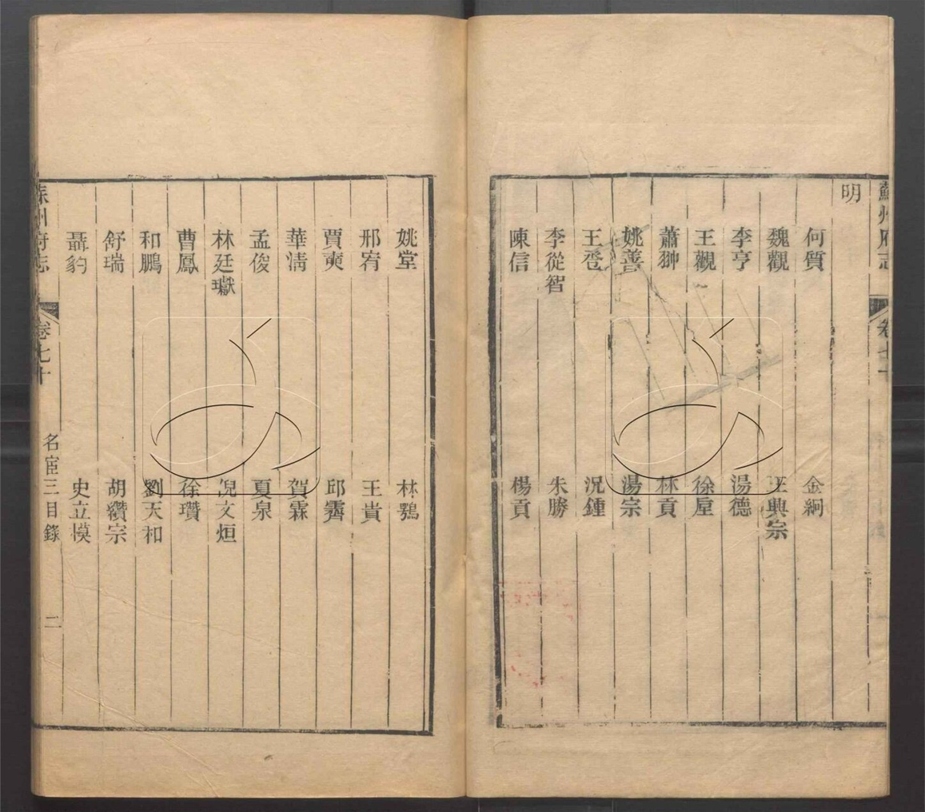 蘇州府志 卷七十
明
何質 金絅
魏觀 王興宗
李亨 湯德
王觀 徐垕
蕭翀 林貢
姚善 湯宗
王 況鍾
李從智 朱勝
陳信 楊貢
姚堂 林鶚
邢宥 王貴
賈奭 邱霽
華清 賀霖
孟俊 夏泉
林廷㭿 倪文烜
曹鳳 徐瓚
和鵬 劉天和
舒瑞 胡纘宗
聶豹 史立模
蘇州府志 卷七十 名宦三目錄 二